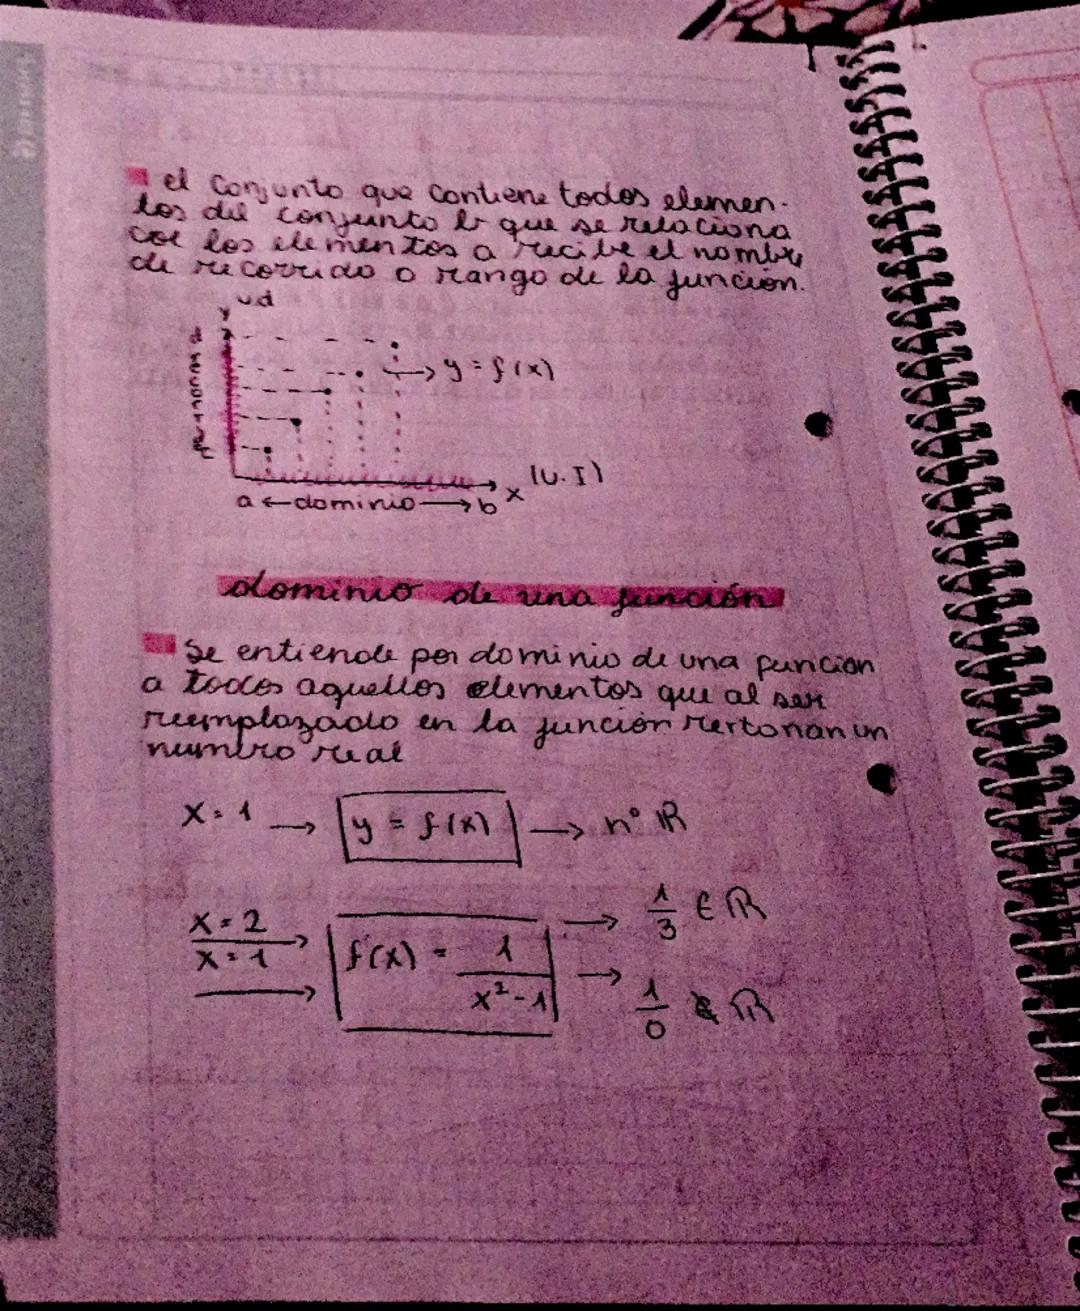 el Conjunto que contiene todos elemen-
tos del conjunto b que se relaciona
los elementos a recibe el nombre
de recorrido o rango de la función.
y v.d
recorrido
y = f(x)
x (v.I)
a ← dominio → b
dominio de una función
Se entiende por dominio de una funcion
a todos aquellos elementos que al ser
reemplazado en la función rertonan un
numero real
x = 1 → y = f(x) → n° ℝ
x = 2 → f(x) = 1/(x² - 1) → 1/3 ∈ ℝ
x = 1 → → 1/0 ∉ ℝ